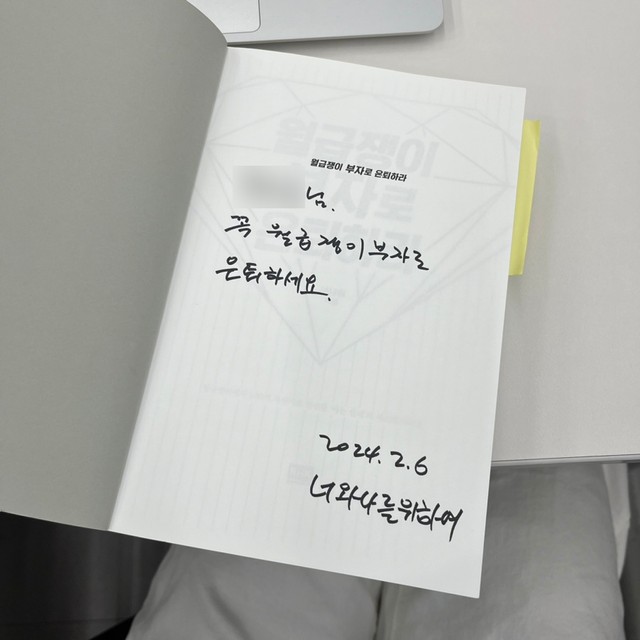 월급쟁이 부자로 은퇴하라
님.
꼭 월급쟁이부자로
은퇴하세요.
2024.2.6
너와나를위하여